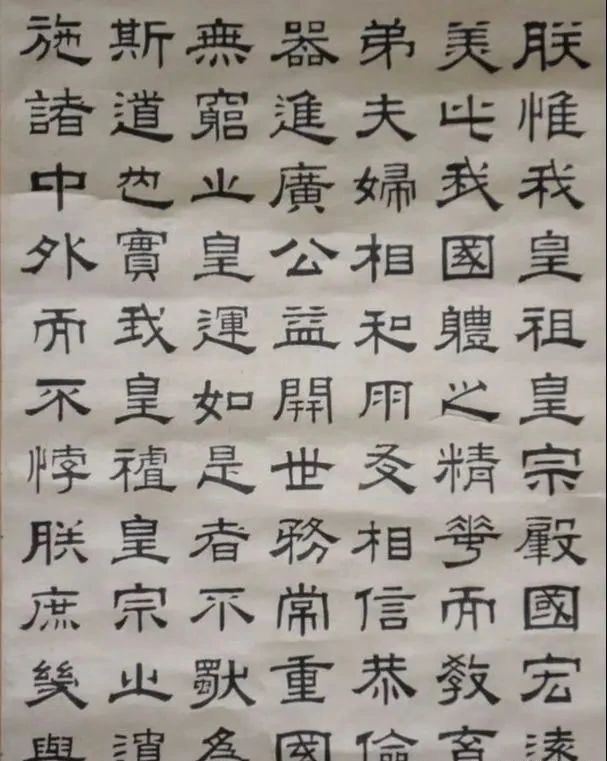 朕惟我皇祖皇宗肇國宏遠
美此我國體之精華而敎育
弟夫婦相和朋友相信恭儉
器進廣公益開世務常重國
無窮之皇運如是者不獨為
斯道也實我皇祖皇宗之遺
施諸中外而不悖朕庶幾與